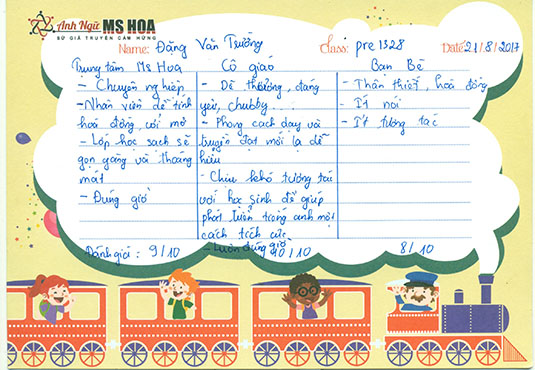 Anh Ngữ MS HOA
SỨ GIẢ TRUYỀN CẢM HỨNG
Name: Đặng Văn Trường Class: pre 1328 Date: 21/8/2017
Trung tâm Ms Hoa
- Chuyên nghiệp
- Nhân viên dễ tính
hoà đồng, cởi mở
- Lớp học sạch sẽ
gọn gàng và thoáng
mát
- Đúng giờ
Đánh giá : 9/10
Cô giáo
- Dễ thương, đáng
yêu, chubby...
- Phong cách dạy và
truyền đạt mới lạ dễ
hiểu
- Chịu khó tương tác
với học sinh để giúp
phát triển tiếng anh một
cách tích cực
- Luôn đúng giờ
10/10
Bạn Bè
- Thân thiết, hoà đồng
- Ít nói
- Ít tương tác
8/10